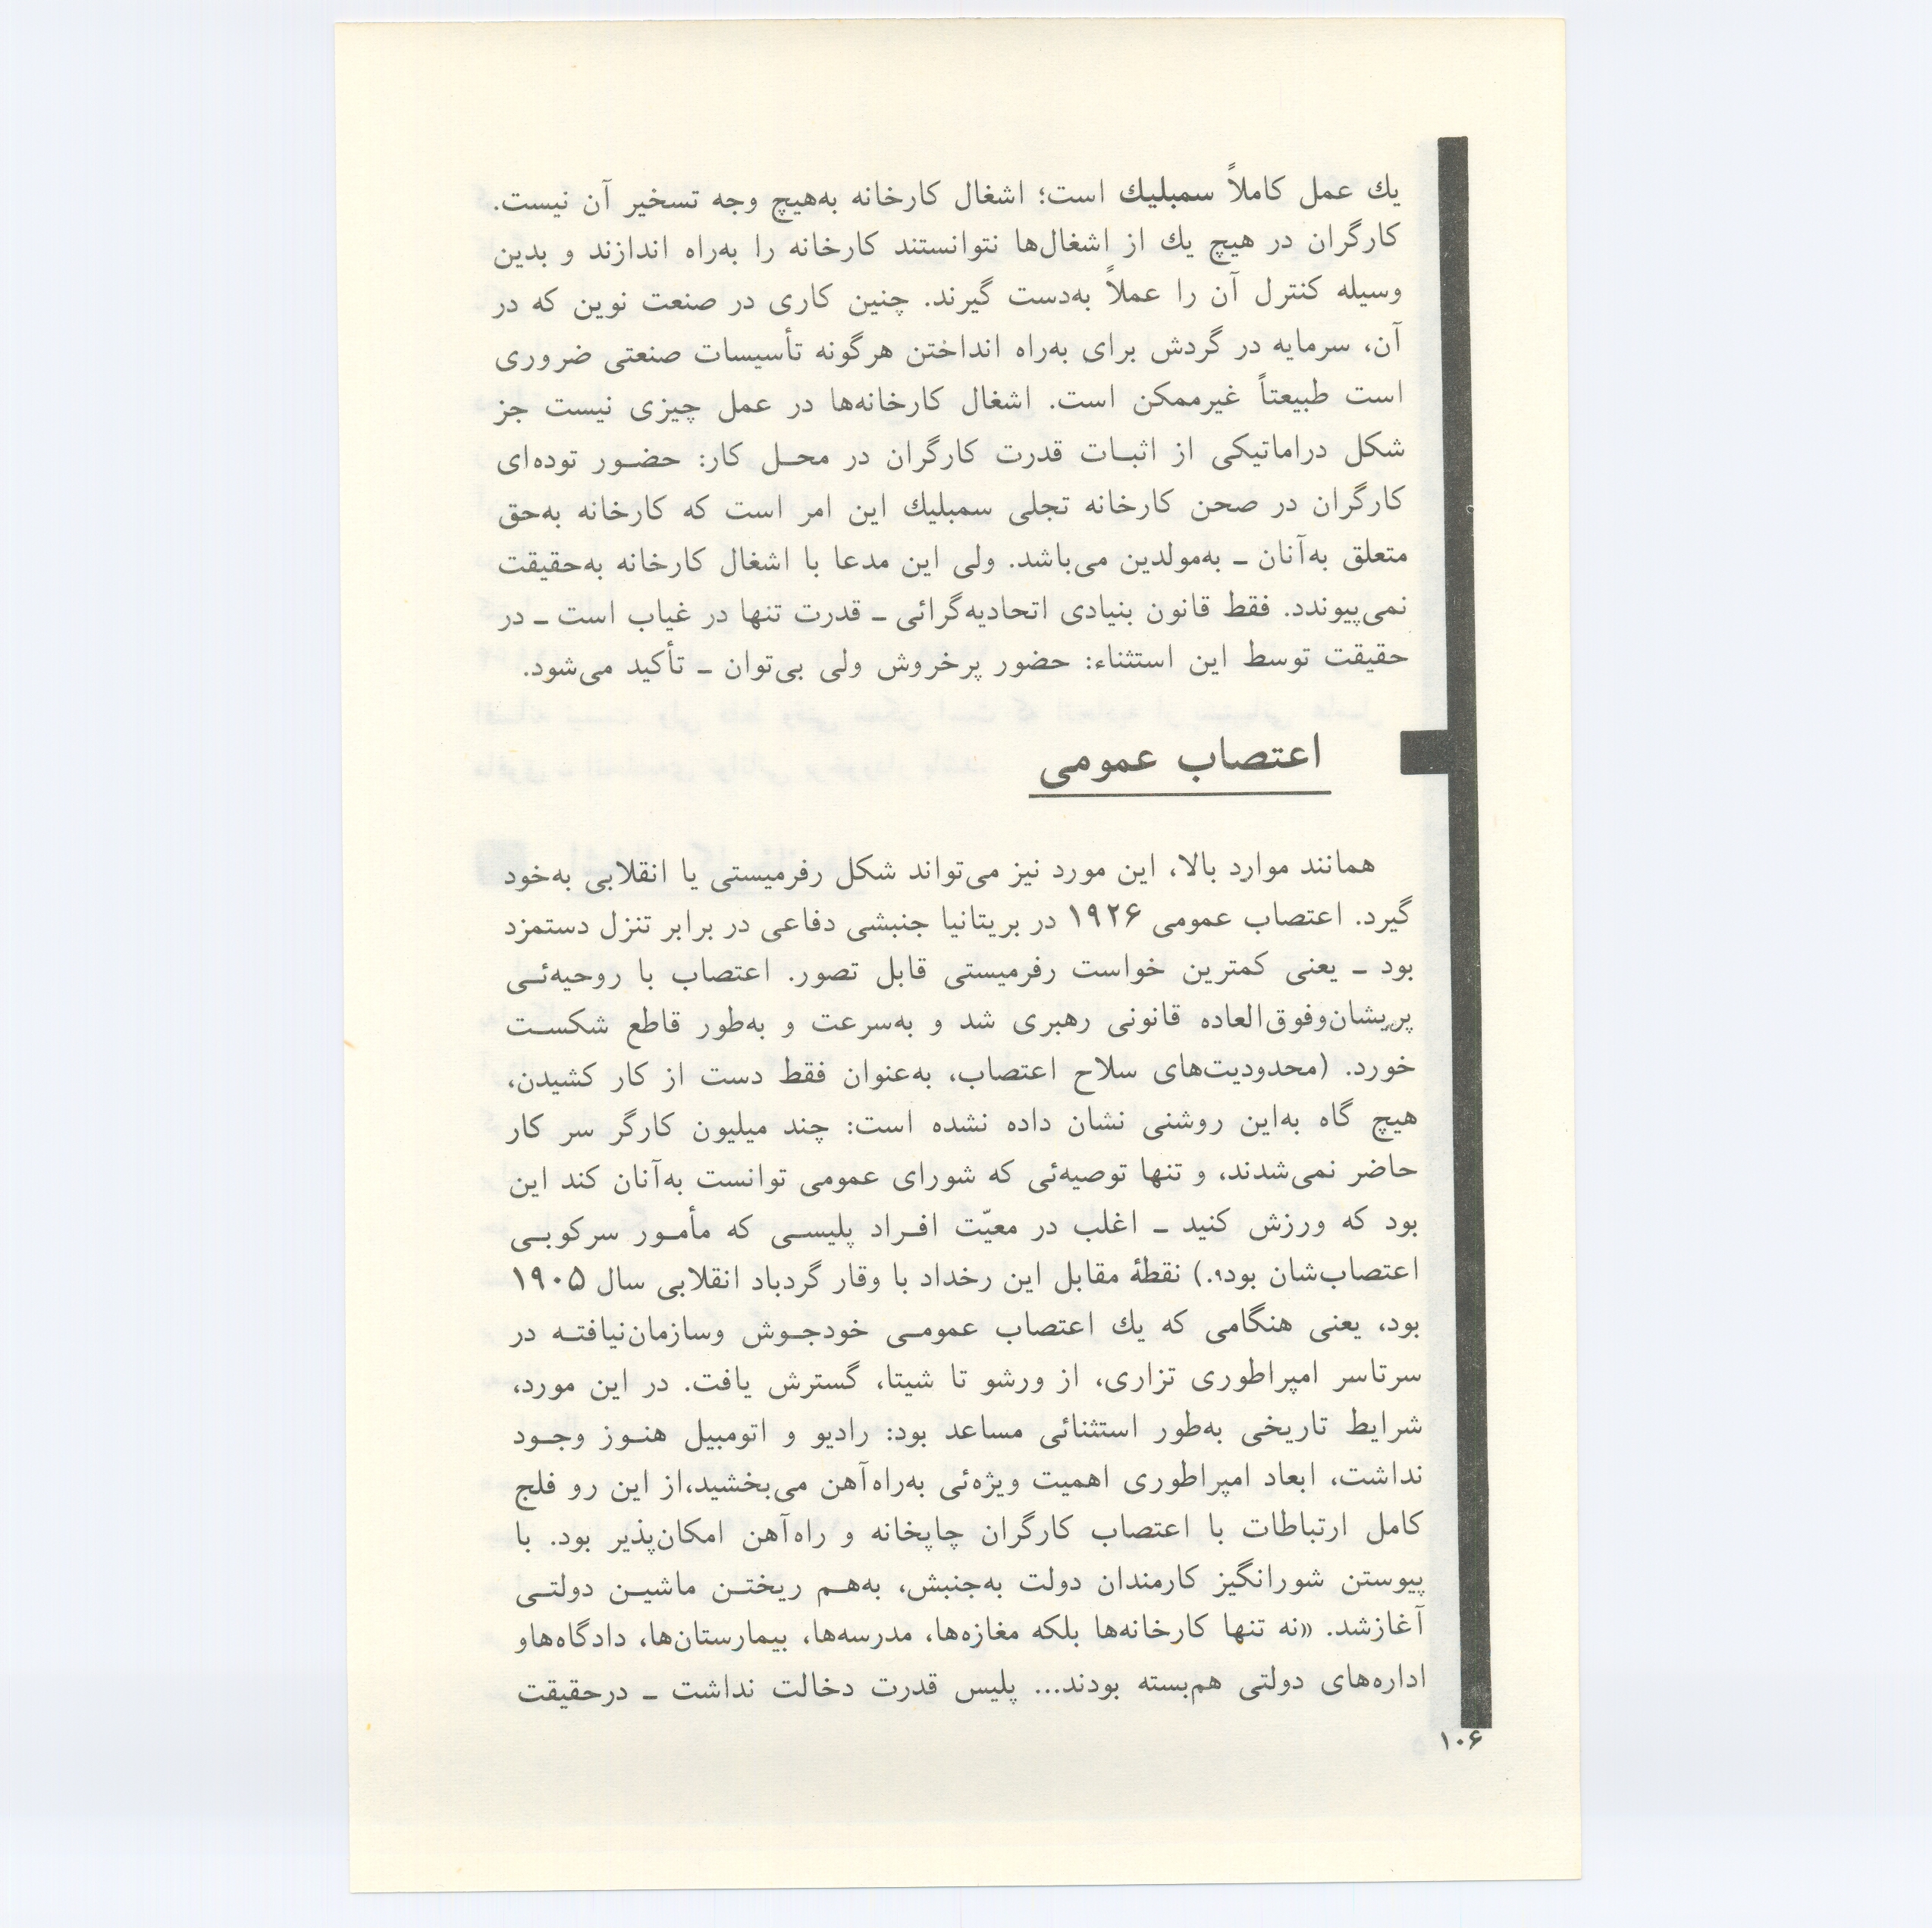 یك عمل کاملاً سمبلیك است؛ اشغال کارخانه به‌هیچ وجه تسخیر آن نیست.
کارگران در هیچ یك از اشغال‌ها نتوانستند کارخانه را به‌راه اندازند و بدین
وسیله کنترل آن را عملاً به‌دست گیرند. چنین کاری در صنعت نوین که در
آن، سرمایه در گردش برای به‌راه انداختن هرگونه تأسیسات صنعتی ضروری
است طبیعتاً غیرممکن است. اشغال کارخانه‌ها در عمل چیزی نیست جز
شکل دراماتیکی از اثبـات قدرت کارگران در محـل کار: حضـور توده‌ای
کارگران در صحن کارخانه تجلی سمبلیك این امر است که کارخانه به‌حق
متعلق به‌آنان ـ به‌مولدین می‌باشد. ولی این مدعا با اشغال کارخانه به‌حقیقت
نمی‌پیوندد. فقط قانون بنیادی اتحادیه‌گرائی ـ قدرت تنها در غیاب است ـ در
حقیقت توسط این استثناء: حضور پرخروش ولی بی‌توان ـ تأکید می‌شود.
اعتصاب عمومی
همانند موارد بالا، این مورد نیز می‌تواند شکل رفرمیستی یا انقلابی به‌خود
گیرد. اعتصاب عمومی ۱۹۲۶ در بریتانیا جنبشی دفاعی در برابر تنزل دستمزد
بود ـ یعنی کمترین خواست رفرمیستی قابل تصور. اعتصاب با روحیه‌ئـی
پریشان‌وفوق‌العاده قانونی رهبری شد و به‌سرعت و به‌طور قاطع شکسـت
خورد. (محدودیت‌های سلاح اعتصاب، به‌عنوان فقط دست از کار کشیدن،
هیچ گاه به‌این روشنی نشان داده نشده است: چند میلیون کارگر سر کار
حاضر نمی‌شدند، و تنها توصیه‌ئی که شورای عمومی توانست به‌آنان کند این
بود که ورزش کنید ـ اغلب در معیّت افـراد پلیسـی که مأمـور سرکوبـی
اعتصاب‌شان بود۹.) نقطهٔ مقابل این رخداد با وقار گردباد انقلابی سال ۱۹۰۵
بود، یعنی هنگامی که یك اعتصاب عمومـی خودجـوش وسازمان‌نیافتـه در
سرتاسر امپراطوری تزاری، از ورشو تا شیتا، گسترش یافت. در این مورد،
شرایط تاریخی به‌طور استثنائی مساعد بود: رادیو و اتومبیل هنـوز وجـود
نداشت، ابعاد امپراطوری اهمیت ویژه‌ئی به‌راه‌آهن می‌بخشید،از این رو فلج
کامل ارتباطات با اعتصاب کارگران چاپخانه و راه‌آهن امکان‌پذیر بود. با
پیوستن شورانگیز کارمندان دولت به‌جنبش، به‌هـم ریختـن ماشیـن دولتـی
آغازشد. «نه تنها کارخانه‌ها بلکه مغازه‌ها، مدرسه‌ها، بیمارستان‌ها، دادگاه‌هاو
اداره‌های دولتی هم‌بسته بودند... پلیس قدرت دخالت نداشت ـ درحقیقت
۱۰۶